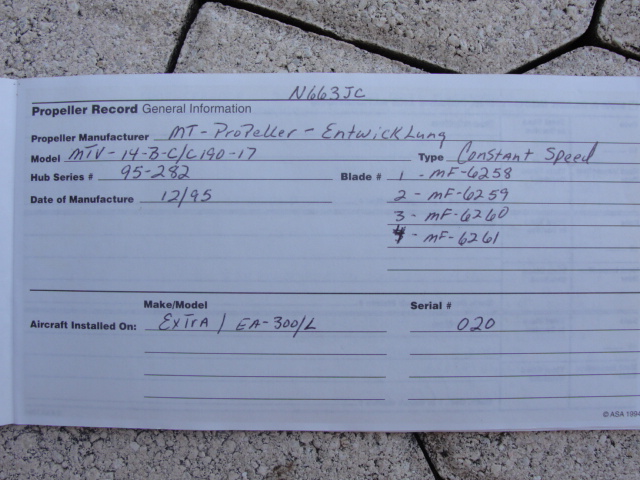 N663JC
Propeller Record General Information
Propeller Manufacturer MT-Propeller-Entwicklung
Model MTV-14-B-C/C190-17 Type Constant Speed
Hub Series # 95-282 Blade # 1 - MF-6258
Date of Manufacture 12/95 2 - MF-6259
3 - MF-6260
4 - MF-6261
Make/Model Serial #
Aircraft Installed On: ExTrA / EA-300/L 020
© ASA 1994